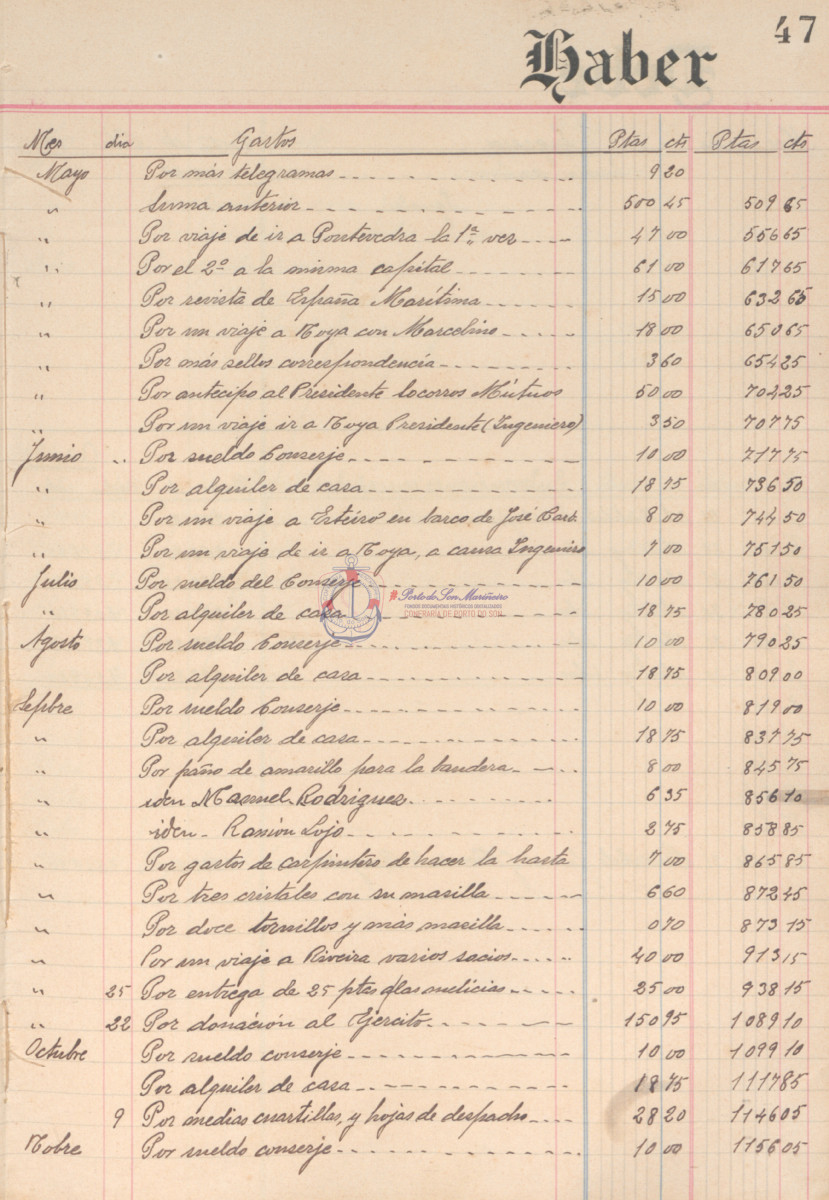 47
Haber
Mes dia Gastos Ptas cts Ptas cts
Mayo Por más telegramas 9 20
" Suma anterior 500 45 509 65
" Por viaje de ir a Pontevedra la 1ª vez 47 00 556 65
" Por el 2º a la misma capital 61 00 617 65
" Por revista de España Marítima 15 00 632 65
" Por un viaje a Noya con Marcelino 18 00 650 65
" Por más sellos correspondencia 3 60 654 25
" Por antecipo al Presidente Socorros Mútuos 50 00 704 25
" Por un viaje ir a Noya Presidente (Ingeniero) 3 50 707 75
Junio " Por sueldo Conserje 10 00 717 75
" Por alquiler de casa 18 75 736 50
" Por un viaje a Esteiro en barco de José 8 00 744 50
" Por un viaje de ir a Noya, a causa Ingeniero 7 00 751 50
Julio Por sueldo del Conserje 10 00 761 50
" Por alquiler de casa 18 75 780 25
#Porto do Son Mariñeiro
FONDOS DOCUMENTAIS HISTÓRICOS DIXITALIZADOS
ITINERARIA DE PORTO DO SON
Agosto Por sueldo Conserje 10 00 790 25
Por alquiler de casa 18 75 809 00
Sepbre Por sueldo Conserje 10 00 819 00
" Por alquiler de casa 18 75 837 75
" Por paño de amarillo para la bandera 8 00 845 75
" iden Manuel Rodriguez 6 35 856 10
" iden - Ramón Lojo 2 75 858 85
" Por gastos de carpintero de hacer la hasta 7 00 865 85
" Por tres cristales con su masilla 6 60 872 45
" Por doce tornillos y más masilla 0 70 873 15
" Por un viaje a Riveira varios socios 40 00 913 15
" 25 Por entrega de 25 ptas p/las milicias 25 00 938 15
" 22 Por donación al Ejercito 150 95 1089 10
Octubre Por sueldo conserje 10 00 1099 10
Por alquiler de casa 18 75 1117 85
9 Por medias cuartillas, y hojas de despacho 28 20 1146 05
Nobre Por sueldo conserje 10 00 1156 05